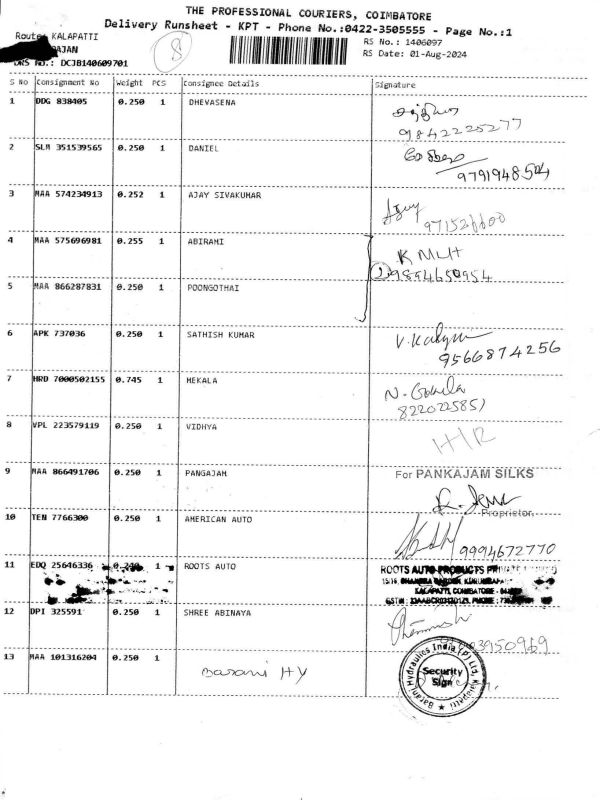 THE PROFESSIONAL COURIERS, COIMBATORE
Delivery Runsheet - KPT - Phone No.:0422-3505555 - Page No.:1
Route: KALAPATTI
RS No.: 1406097
RS Date: 01-Aug-2024
DRS No.: DCJB140609701
8
S No Consignment No Weight PCS Consignee Details Signature
1 DDG 838405 0.250 1 DHEVASENA
9842225277
2 SLM 351539565 0.250 1 DANIEL
9791948504
3 MAA 574234913 0.252 1 AJAY SIVAKUMAR
Ajay
971526600
4 MAA 575696981 0.255 1 ABIRAMI
K MCH
2 9894650954
5 MAA 866287831 0.250 1 POONGOTHAI
6 APK 737036 0.250 1 SATHISH KUMAR
9566874256
7 HRD 7000502155 0.745 1 MEKALA
8220225851
8 VPL 223579119 0.250 1 VIDHYA
H/R
9 MAA 866491706 0.250 1 PANGAJAM
For PANKAJAM SILKS
Proprietor
10 TEN 7766300 0.250 1 AMERICAN AUTO
9994672770
11 EDQ 25646336 1 ROOTS AUTO
ROOTS AUTO PRODUCTS
KALAPATTI, COIMBATORE
12 DPI 325591 0.250 1 SHREE ABINAYA
3950969
13 MAA 101316204 0.250 1 Barani HY
Barani Hydraulics India (P) Ltd, Kalapatti
Security
Sign